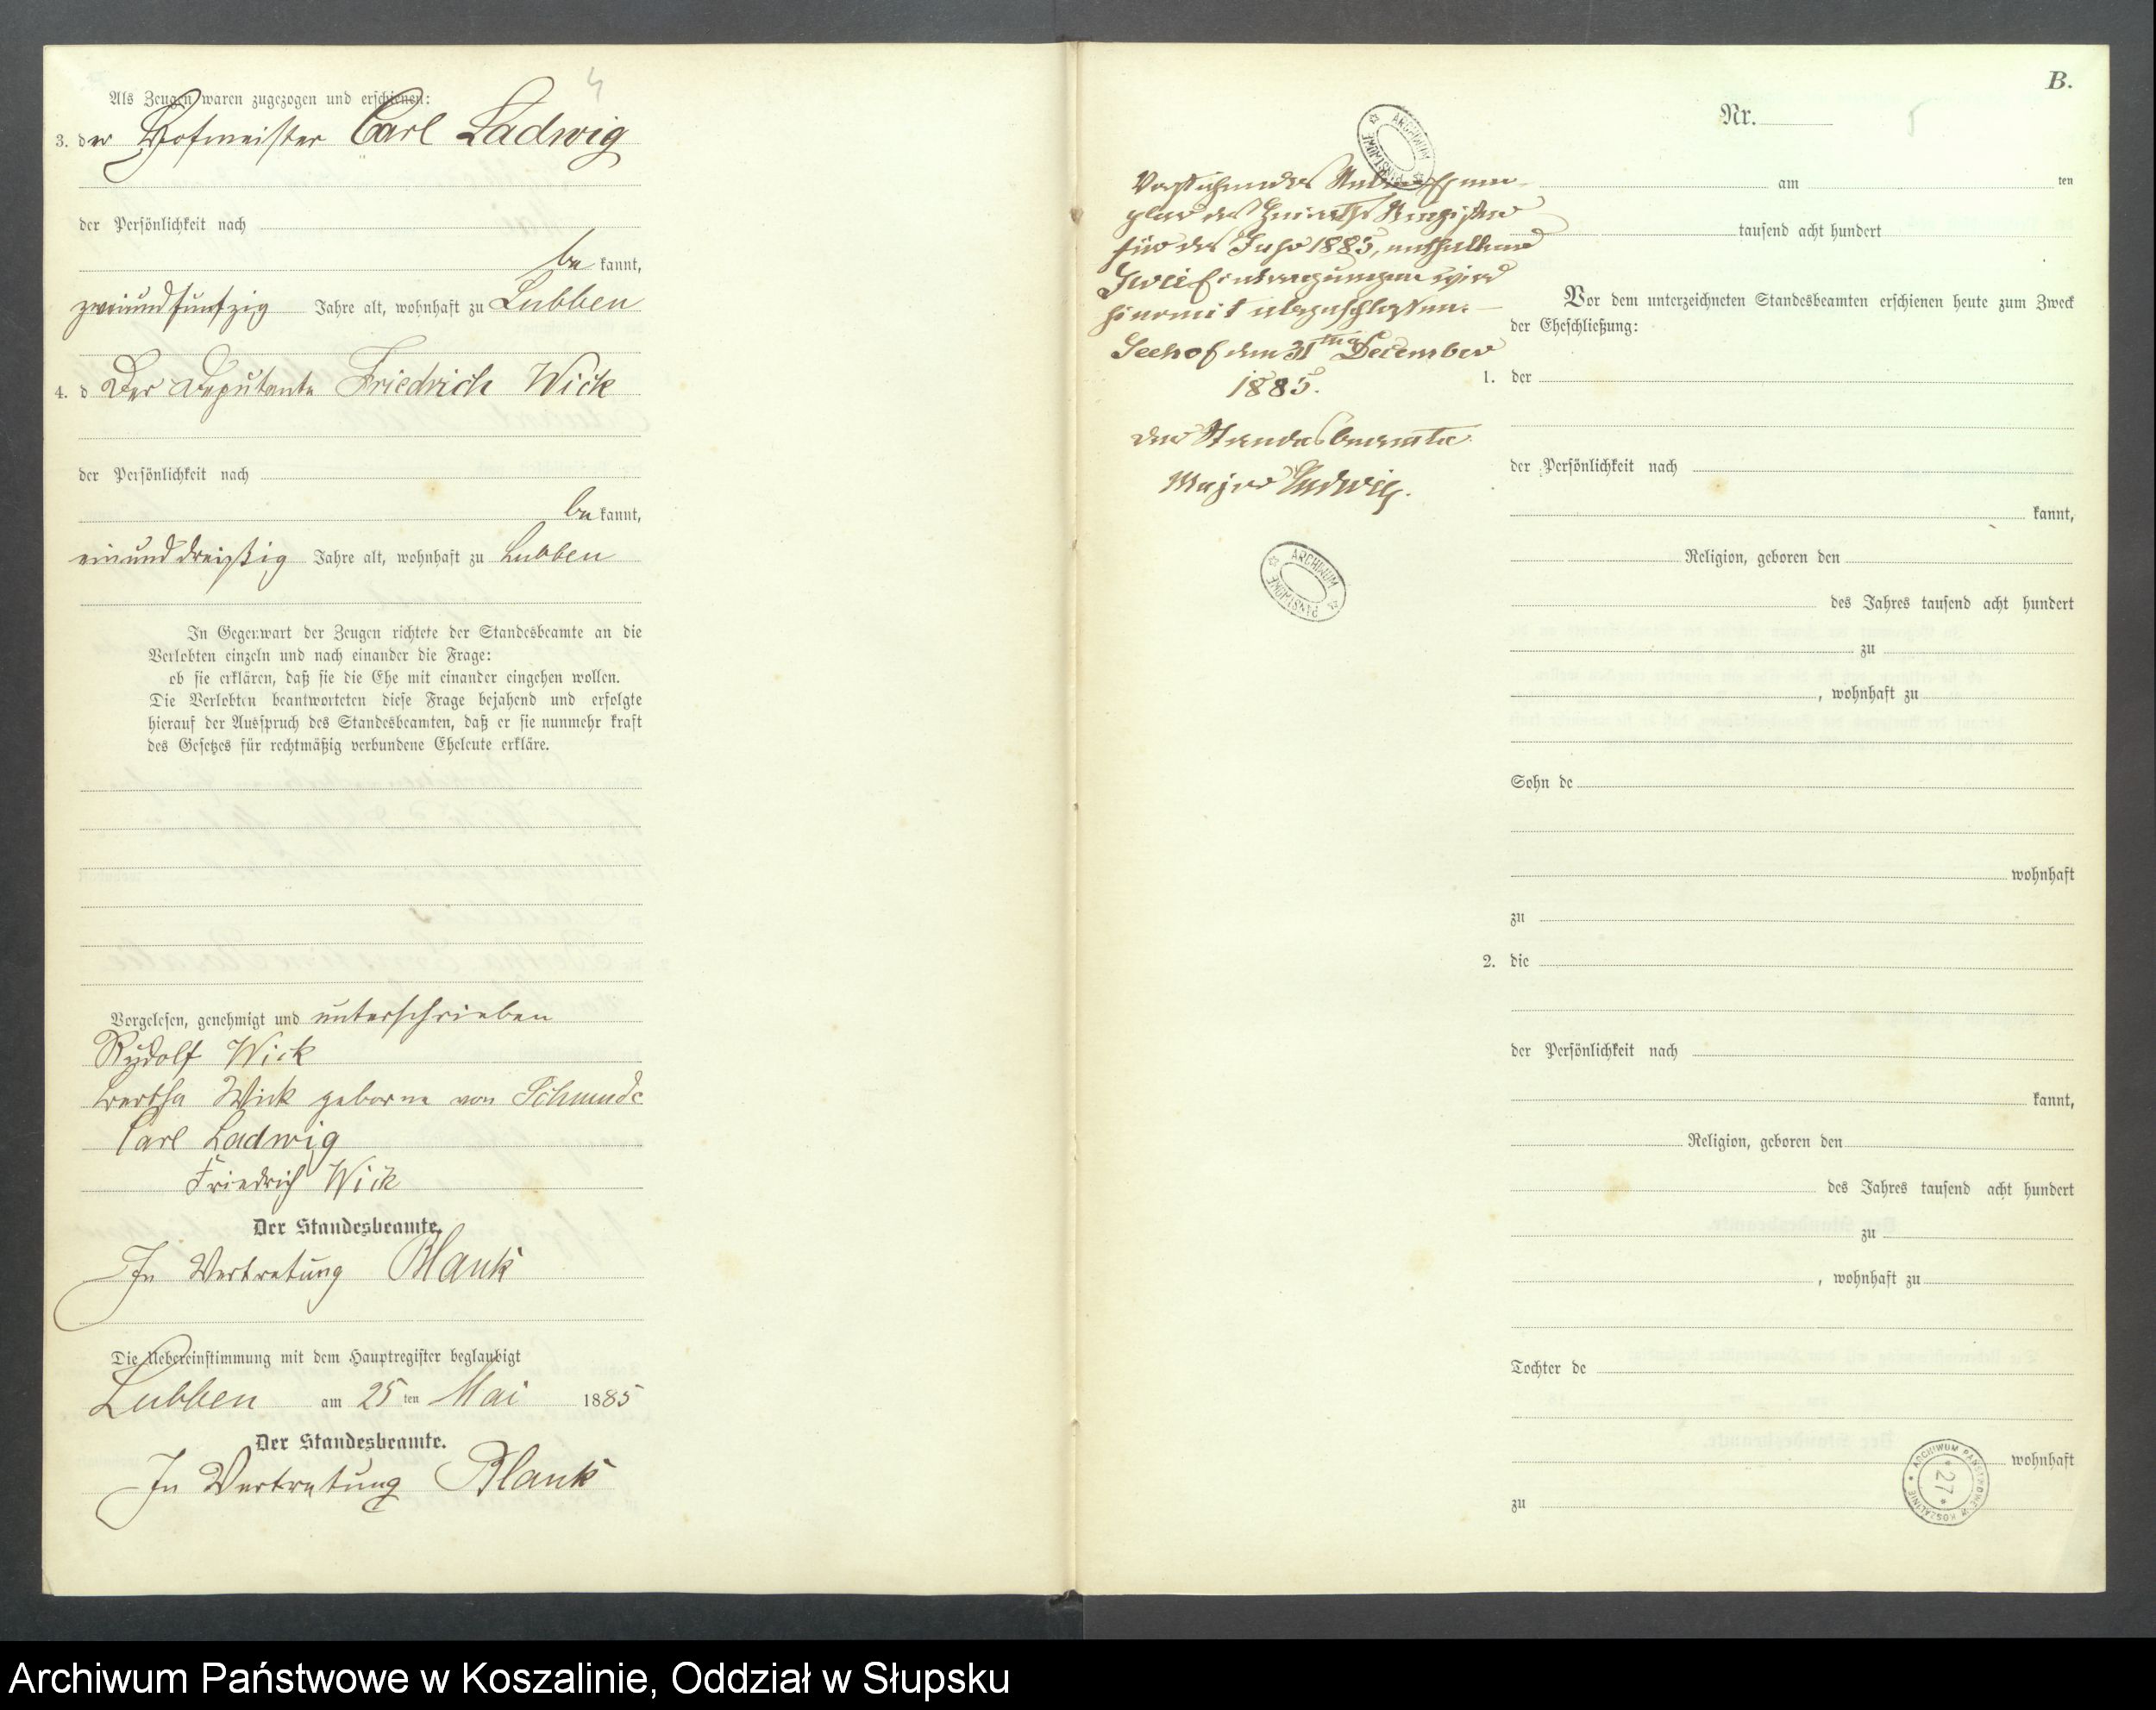 4
Als Zeugen waren zugezogen und erschienen:
3. der Hofmeister Carl Ladwig
der Persönlichkeit nach
be kannt,
zweiundfünfzig Jahre alt, wohnhaft zu Lubben
4. d Der Deputante Friedrich Wick
der Persönlichkeit nach
be kannt,
einunddreißig Jahre alt, wohnhaft zu Lubben
In Gegenwart der Zeugen richtete der Standesbeamte an die
Verlobten einzeln und nach einander die Frage:
ob sie erklären, daß sie die Ehe mit einander eingehen wollen.
Die Verlobten beantworteten diese Frage bejahend und erfolgte
hierauf der Ausspruch des Standesbeamten, daß er sie nunmehr kraft
des Gesetzes für rechtmäßig verbundene Eheleute erkläre.
Vorgelesen, genehmigt und unterschrieben
Rudolf Wick
Bertha Wick geborne von Schmude
Carl Ladwig
Friedrich Wick
Der Standesbeamte.
In Vertretung Blank
Die Uebereinstimmung mit dem Hauptregister beglaubigt
Lubben am 25 ten Mai 1885
Der Standesbeamte.
In Vertretung Blank
B.
Nr.
5
ARCHIWUM PAŃSTWOWE
Vorstehendes Neben Exem
plar des Heiraths Registers
für das Jahr 1885, enthaltend
Zwei Eintragungen wird
hiermit abgeschlossen.
Seehof den 31ten December
1885.
Der Standesbeamte
Major Ludwig.
ARCHIWUM PAŃSTWOWE
am ten
tausend acht hundert
Vor dem unterzeichneten Standesbeamten erschienen heute zum Zweck
der Eheschließung:
1. der
der Persönlichkeit nach
kannt,
Religion, geboren den
des Jahres tausend acht hundert
zu
, wohnhaft zu
Sohn de
wohnhaft
zu
2. die
der Persönlichkeit nach
kannt,
Religion, geboren den
des Jahres tausend acht hundert
zu
, wohnhaft zu
Tochter de
wohnhaft
zu
ARCHIWUM PAŃSTWOWE W KOSZALINIE
*27*
Archiwum Państwowe w Koszalinie, Oddział w Słupsku